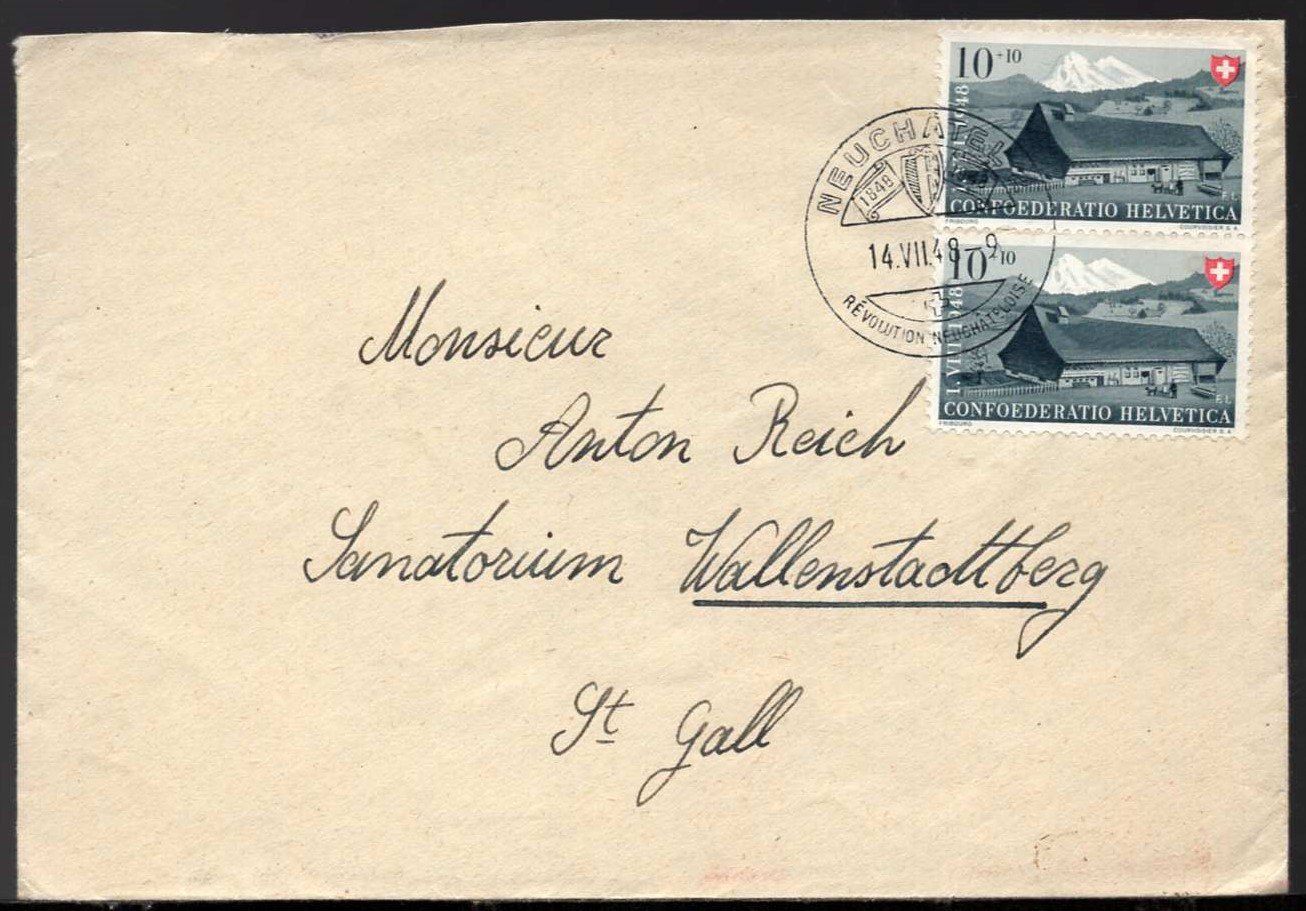 10+10
1.VIII.1948
CONFOEDERATIO HELVETICA
FRIBOURG COURVOISIER S.A.
F.L.
NEUCHATEL
1848
14.VII.48-9
RÉVOLUTION NEUCHÂTELOISE
10+10
1.VIII.1948
CONFOEDERATIO HELVETICA
FRIBOURG COURVOISIER S.A.
F.L.
Monsieur
Anton Reich
Sanatorium Wallenstadtberg
St Gall